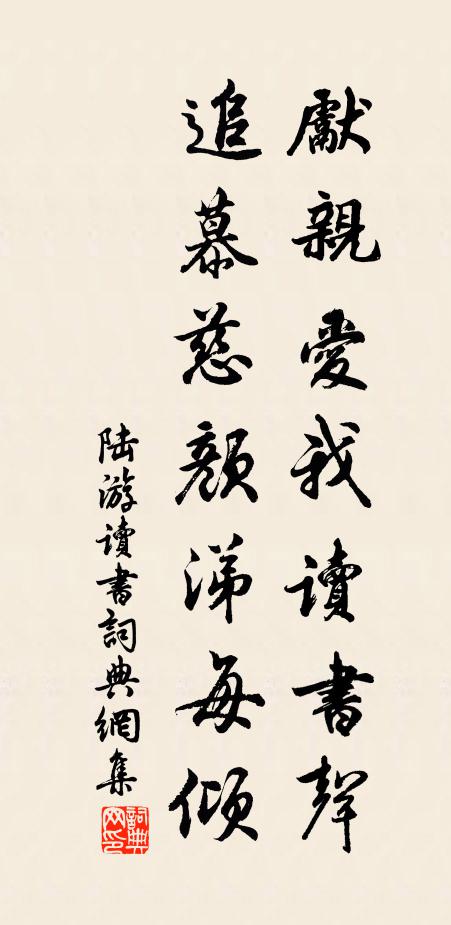 獻親愛我讀書聲
追慕慈顏涕每傾
陆游讀書詞典網集
詞典网印